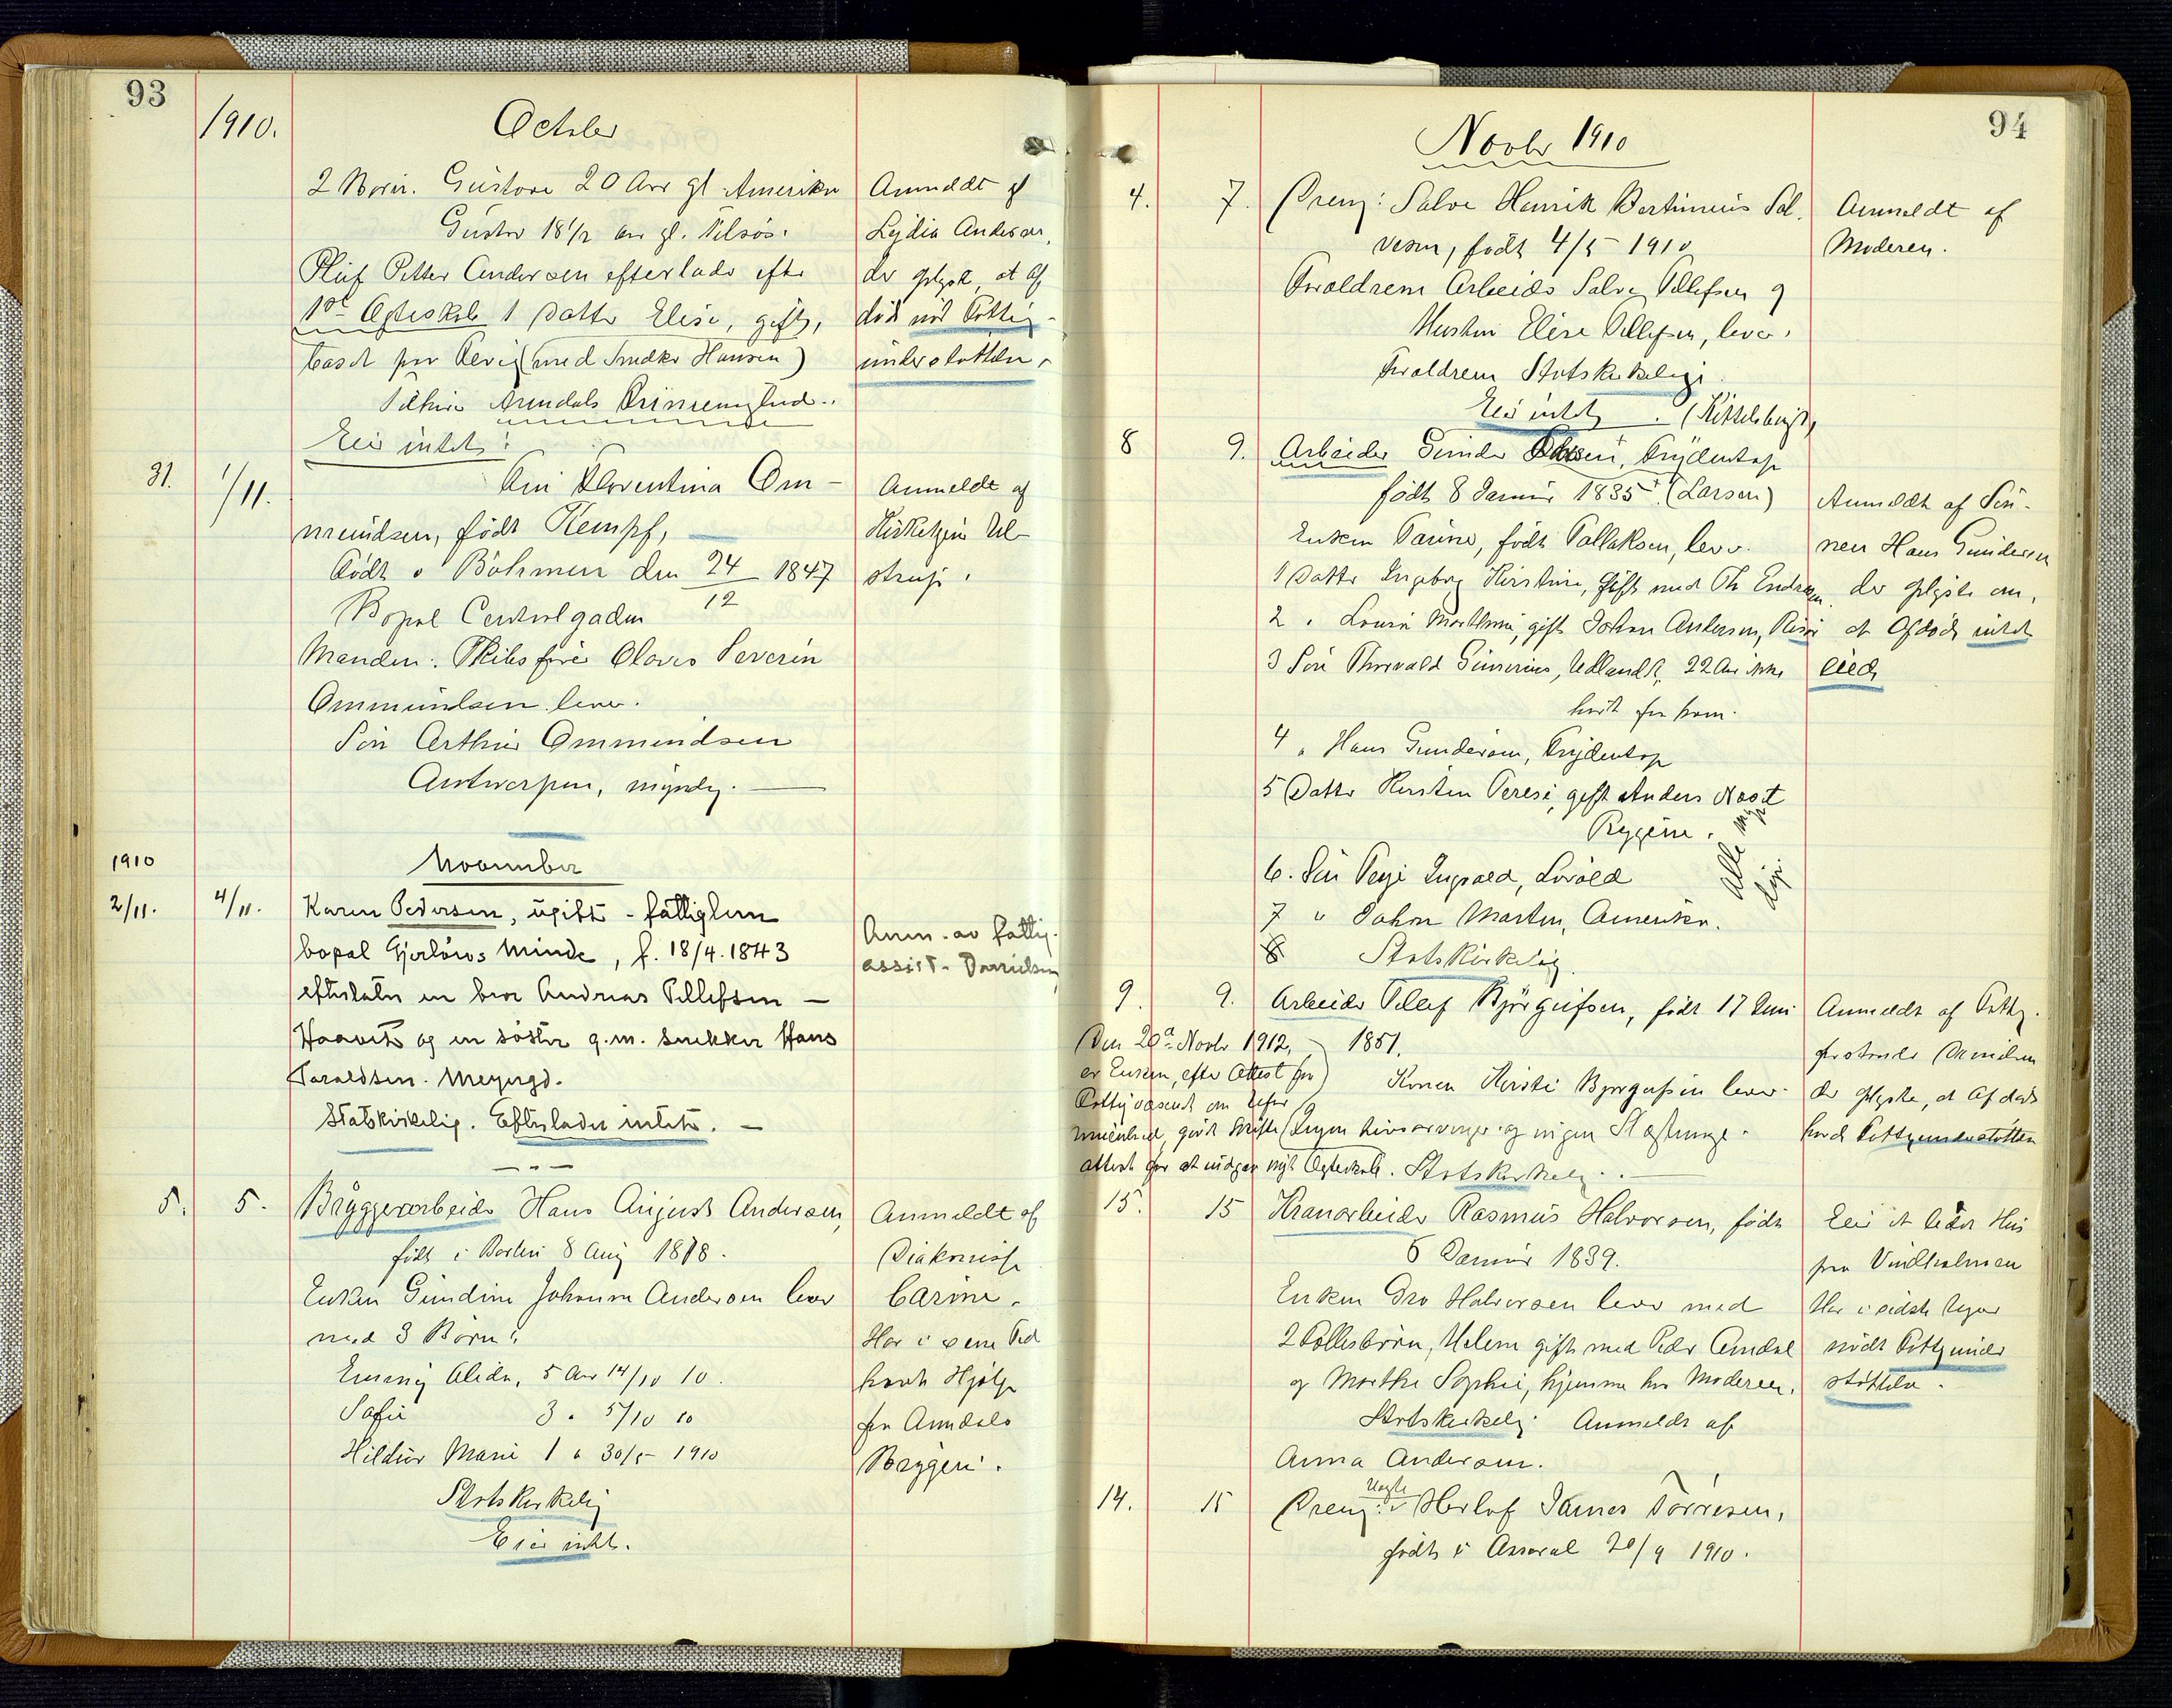 93
1910.
October
2 Børn. Gustava 20 Aar gl Amerika
Gustav 18 1/2 aar gl. Tilsøs.
Anmeldt af
Lydia Andersen,
Petter Andersen efterlader efter
1ste Ægteskab 1 Datter Elise, gift,
(med Snedker Hansen)
der oplyste, at Af
død nød Fattig-
understøttelse.
Tilhører Arendals
Eier intet.
31.
1/11.
Florentina Om-
mundsen, født Kempf,
Født i Böhmen den 24/12 1847
Bopæl Centralgaden
Manden: Skibsfører Olaves Severin
Ommundsen lever.
Søn Arthur Ommundsen
Antwerpen, myndig.
Anmeldt af
Ul-
strup.
1910
November
2/11.
4/11.
Karen Pedersen, ugift - fattiglem
bopæl Gjerløws Minde, f. 18/4. 1843
efterlater en bror Andreas Tellefsen –
og en søster g.m. snekker Hans
Taraldsen. Meyergd.
Statskirkelig. Efterlader intet. –
Anm. av fattig-
assist. Danielsen
5.
5.
Bryggeriarbeider Hans August Andersen,
født i Berlin 8 Aug 1878.
Enken Gundine Johanna Andersen lever
med 3 Børn:
Emmy Alida, 5 Aar 14/10 10.
Sofie 3 " 5/10 10
Hildur Marie 1 " 30/5 - 1910
Statskirkelig
Eier intet.
Anmeldt af
Diakonisse
Carine.
Har i sene Tid
havt Hjælp
fra Arendals
Bryggeri.
94
Novbr 1910
4.
7.
Dreng: Salve Henrik Bertinius Sal-
vesen, født 4/5 - 1910
Forældrene Arbeider Salve Tellefsen og
Hustru Elise Tellefsen, lever.
Forældrene Statskirkelige
Eier intet. (Kittelsbugt)
Anmeldt af
Moderen.
8
9.
Arbeider Gunder Frydentop
født 8 Januar 1835. (Larsen)
Enken Tarine, født Tallaksen, lever.
1 Datter Ingeborg Kirstine, gift med Th Endresen
2 " Lovise Marthine, gift Johan Andersen, Risør
3 Søn Thorvald Gunerius, Udlandet, 22 Aar ikke
hørt fra ham.
4 " Hans Gundersen, Frydentop
5 Datter Kirsten Terese, gift Anders Næs
Rygene.
6. Søn Terje Ingvald,
7 " Johan Martin, Amerika.
8 Statskirkelig.
alle myn
dige
Anmeldt af Søn-
nen Hans Gundersen
der oplyste om,
at Afdøde intet
eied
9.
9.
Arbeider Tellef Bjørgufsen, født 17 Juni
1851.
Konen Kirsti Bjørgufsen lever.
(Ingen Livsarvinger og ingen Slægtninge.
Statskirkelig.
Den 20de Novbr 1912,
er Enken, efter Attest fra
Fattigvæsenet om
givet Skifte
attest for at indgaa nyt Ægteskab.
Anmeldt af Fattig-
forstander Danielsen
der oplyste, at Afdøde
havde Fattigunderstøttelse
15.
15
Kranarbeider Rasmus Halvorsen, født
6 Januar 1839.
Enken Gro Halvorsen lever med
2 Fællesbørn, Helene gift med Peder Arndal
og Marthe Sophie, hjemme hos Moderen.
Statskirkelig Anmeldt af
Anna Andersen.
Eier et lidet Hus
paa Vindholmen
Har i sidste
nydt Fattigunder
støttelse.
14.
15
Dreng: Uægte Herlof James Tørresen,
født i Asseral 20/9 1910.